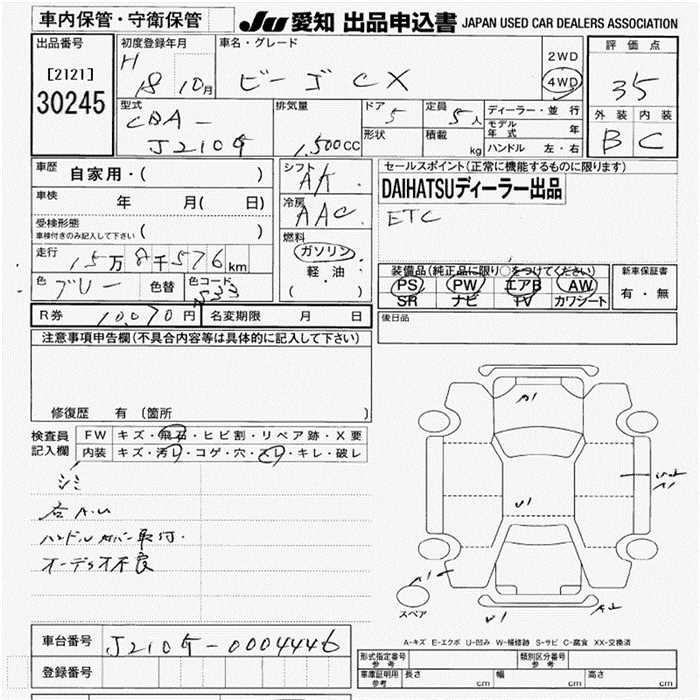 車内保管・守衛保管
JU 愛知 出品申込書 JAPAN USED CAR DEALERS ASSOCIATION
出品番号
[2121]
30245
初度登録年月
H 18 10月
車名・グレード
ビーゴ CX
2WD
4WD
評価点
35
外装 内装
B C
型式
CBA-
J210G
排気量
1,500CC
ドア
5
定員
5人
形状
積載
kg
ディーラー・並行
モデル年式 年
ハンドル 左・右
車歴
自家用・( )
車検
年 月( 日)
受検形態
車検付きのみ記入して下さい ( )
走行
15万8千576km
色
ブルー
色替
色コード
シフト
冷房
AAC
燃料
ガソリン
軽油・
( )
セールスポイント(正常に機能するものに限ります)
DAIHATSUディーラー出品
ETC
装備品(純正品に限り○をつけてください)
PS PW エアB AW
SR ナビ TV カワシート
新車保証書
有・無
R券 10,070円 名変期限 月 日
後日品
注意事項申告欄(不具合内容等は具体的に記入して下さい)
修復歴 有 (箇所 )
検査員
記入欄
FW キズ・飛石・ヒビ割・リペア跡・X要
内装 キズ・汚レ・コゲ・穴・スレ・キレ・破レ
シミ
右A.U
ハンドルカバー取付.
オーディオ不良
A1
U1
A1
A1
U1
A2
スペア
A-キズ E-エクボ U-凹み W-補修跡 S-サビ C-腐食 XX-交換済
車台番号 J210G-0004446
登録番号
形式指定番号
参考
類別区分番号
参考
車庫証明用
参考
長さ cm 幅 cm 高さ cm